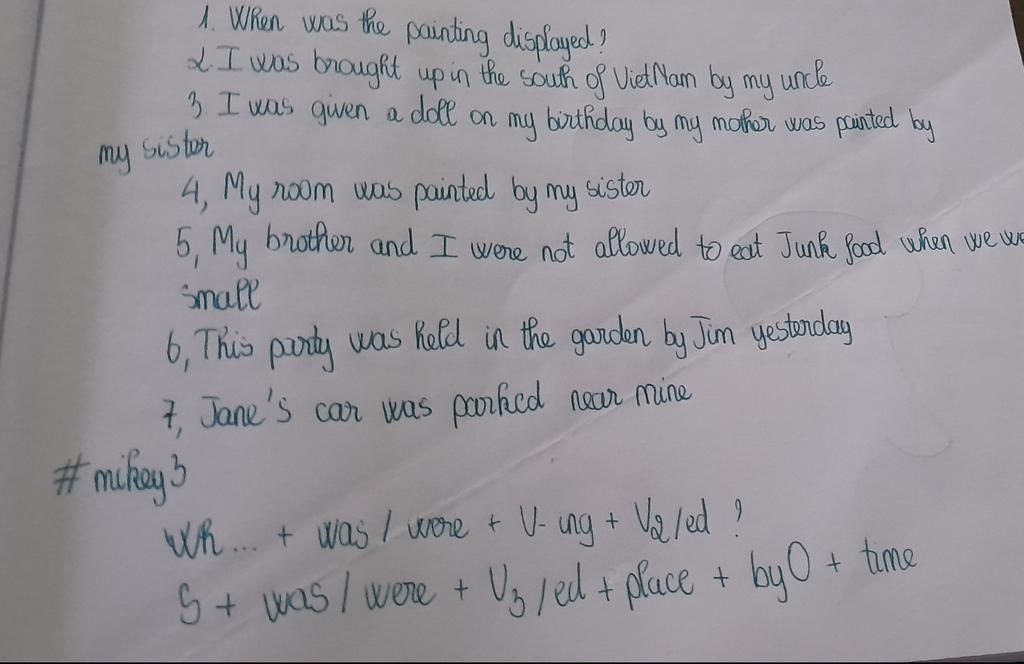 1. When was the painting displayed?
2. I was brought up in the south of VietNam by my uncle
3, I was given a doll on my birthday by my mother was painted by
my sister
4, My room was painted by my sister
5, My brother and I were not allowed to eat Junk food when we we
small
6, This party was held in the garden by Jim yesterday
7, Jane's car was parked near mine
#mikey3
Wh... + was / were + V-ing + V2/ed ?
S + was / were + V3/ed + place + by O + time